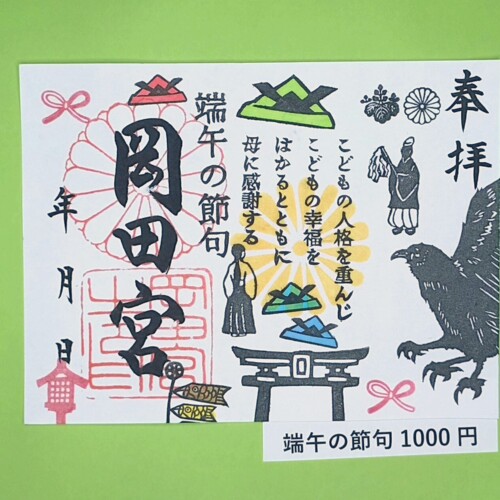 奉拝
こどもの人格を重んじ
こどもの幸福を
はかるとともに
母に感謝する
端午の節句
岡田宮
年月日
端午の節句1000円